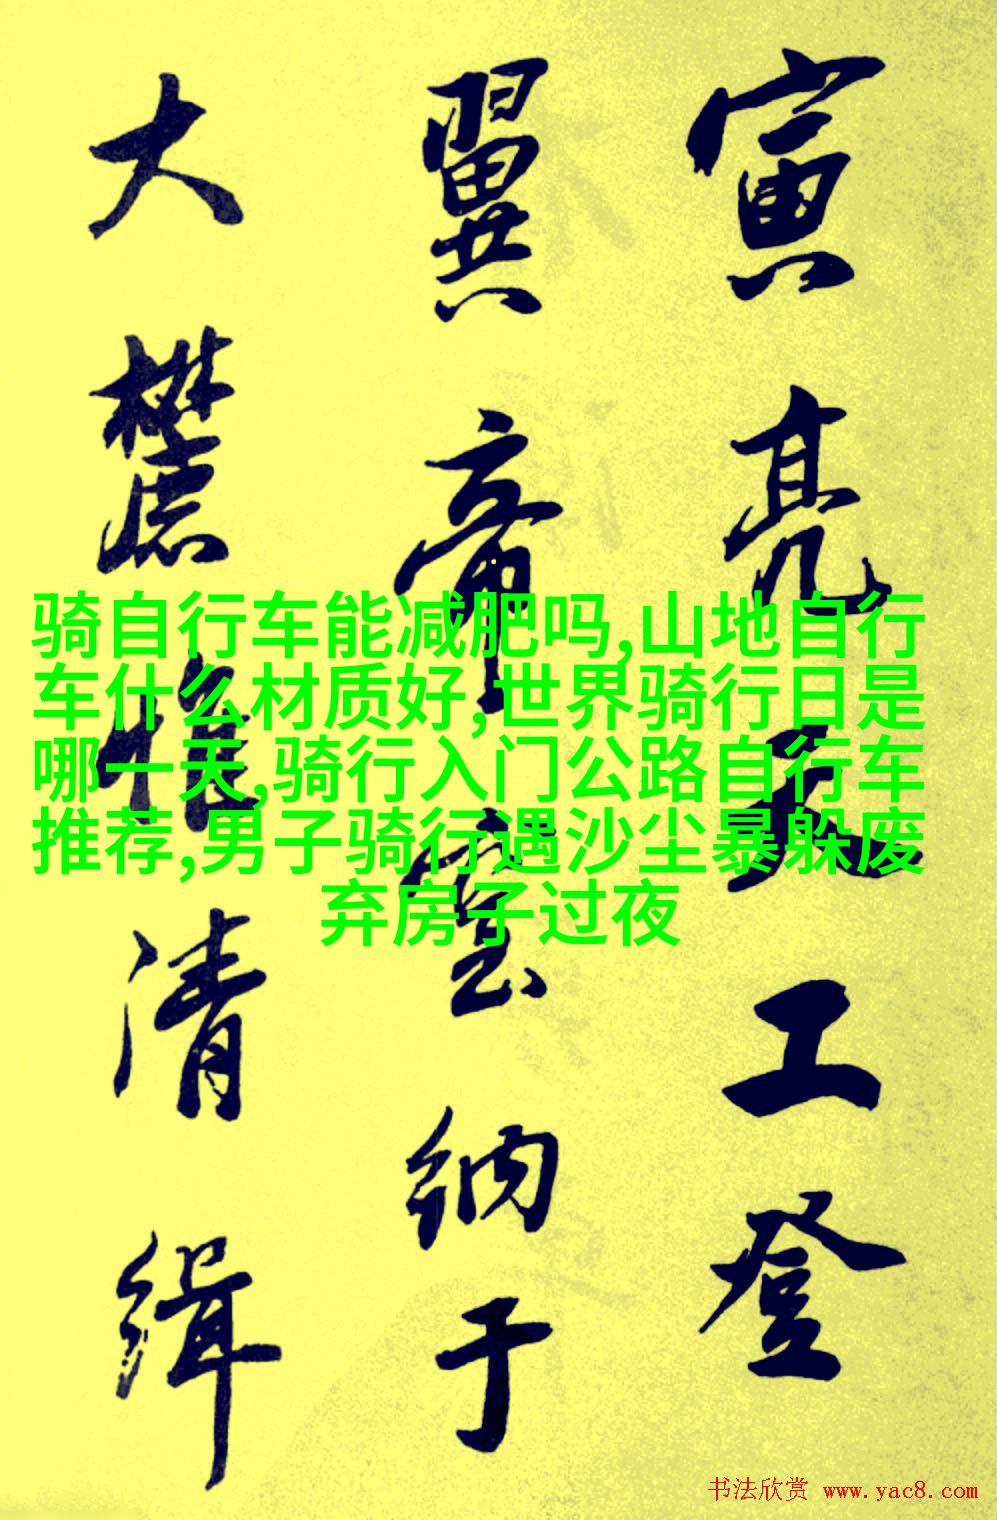 寅亮天工登
翼帝室纳于
大麓惟清缉
骑自行车能减肥吗,山地自行
车什么材质好,世界骑行日是
哪一天,骑行入门公路自行车
推荐,男子骑行遇沙尘暴躲废
弃房子过夜
书法欣赏 www.yac8.com